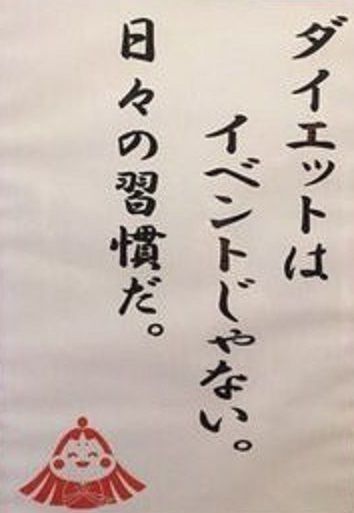 ダイエットは
イベントじゃない。
日々の習慣だ。